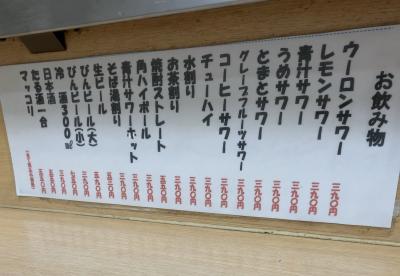 お飲み物
ウーロンサワー 三九〇円
レモンサワー 三九〇円
青汁サワー 三九〇円
うめサワー 三九〇円
とまとサワー 三九〇円
グレープフルーツサワー 三九〇円
コーヒーサワー 三九〇円
チューハイ 三九〇円
水割り 三九〇円
お茶割り 三九〇円
焼酎ストレート
角ハイボール
青汁サワーホット 三九〇円
そば湯割り 三九〇円
生ビール
びんビール(大)
びんビール(小)
冷酒300ml
日本酒
たる酒一合
マッコリ